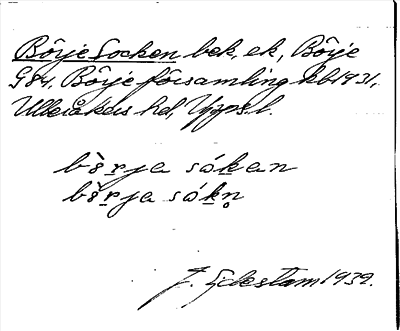 Börje Socken bek, ek, Börje
G84, Börje församling kb1931,
Ulleråkers hd, Upps. l.
bö̀r̠ja sók̠an
bö̀r̠ja sók̠n̥
J. Sjdestam 1932.